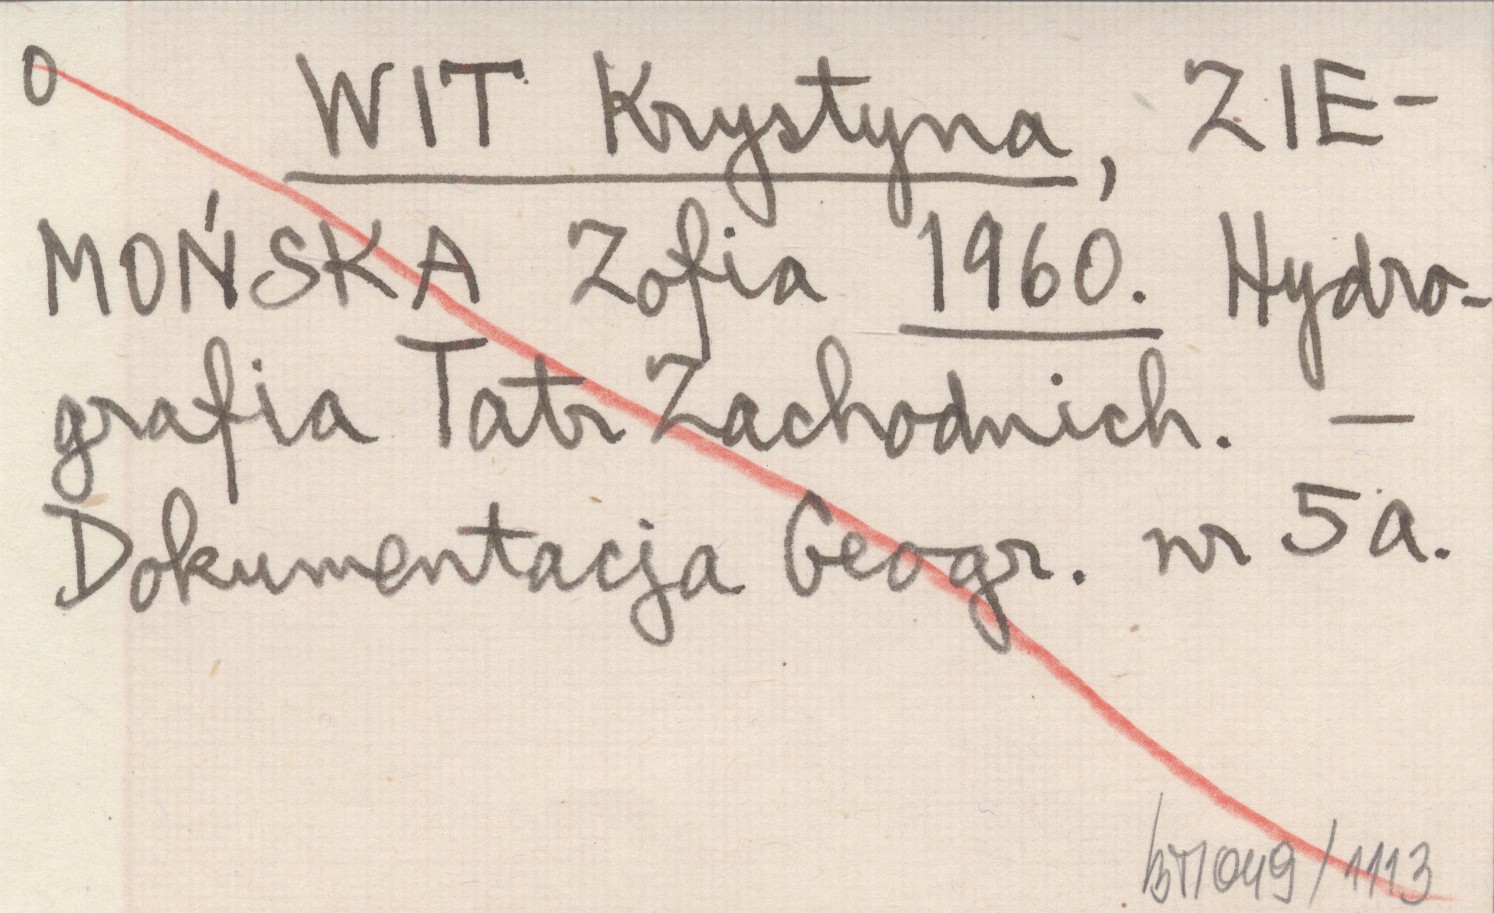 0 WIT Krystyna, ZIE-
MOŃSKA Zofia 1960. Hydro-
grafia Tatr Zachodnich. —
Dokumentacja Geogr. nr 5a.
/1113